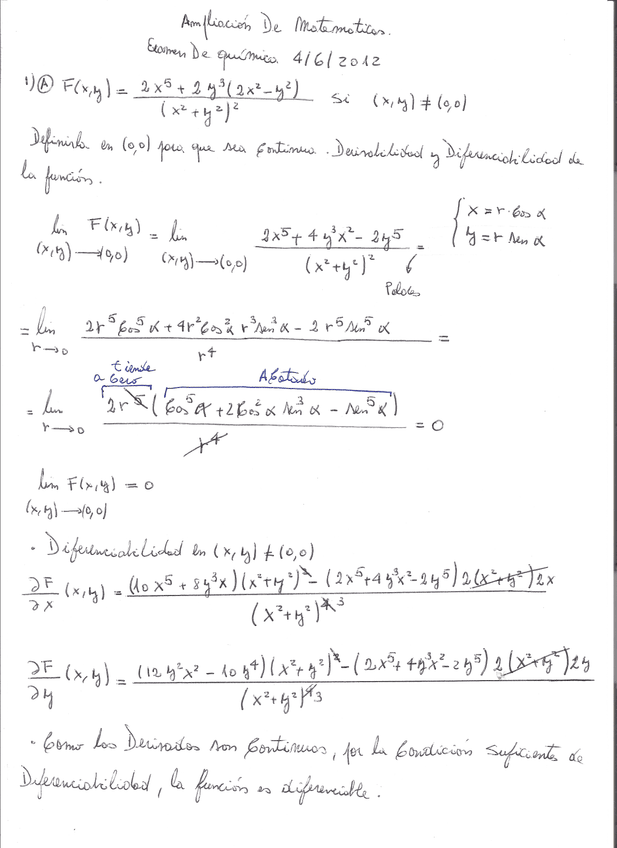 Ampliación De Matematicas.
Examen De química 4/6/2012
1) A F(x,y) = (2x⁵ + 2y³(2x² - y²)) / (x² + y²)² si (x,y) ≠ (0,0)
Definirla en (0,0) para que sea Continua. Derivabilidad y Diferenciabilidad de
la función.
lim (x,y)→(0,0) F(x,y) = lim (x,y)→(0,0) (2x⁵ + 4y³x² - 2y⁵) / (x² + y²)² =
{ x = r·Cos α
y = r sen α
Polares
= lim r→0 (2r⁵ Cos⁵ α + 4r² Cos² α r³ sen³ α - 2r⁵ sen⁵ α) / r⁴ =
tiende
a Cero
Acotado
= lim r→0 2r⁵ (Cos⁵ α + 2Cos² α sen³ α - sen⁵ α) / r⁴ = 0
lim F(x,y) = 0
(x,y)→(0,0)
· Diferenciabilidad en (x,y) ≠ (0,0)
∂F/∂x (x,y) = ((10x⁵ + 8y³x)(x²+y²)² - (2x⁵+4y³x²-2y⁵) 2(x²+y²)2x) / (x²+y²)⁴ 3
∂F/∂y (x,y) = ((12y²x² - 10y⁴)(x²+y²)² - (2x⁵+4y³x²-2y⁵) 2(x²+y²)2y) / (x²+y²)⁴ 3
· Como las Derivadas son Continuas, por la Condición suficiente de
Diferenciabilidad, la función es diferenciable.